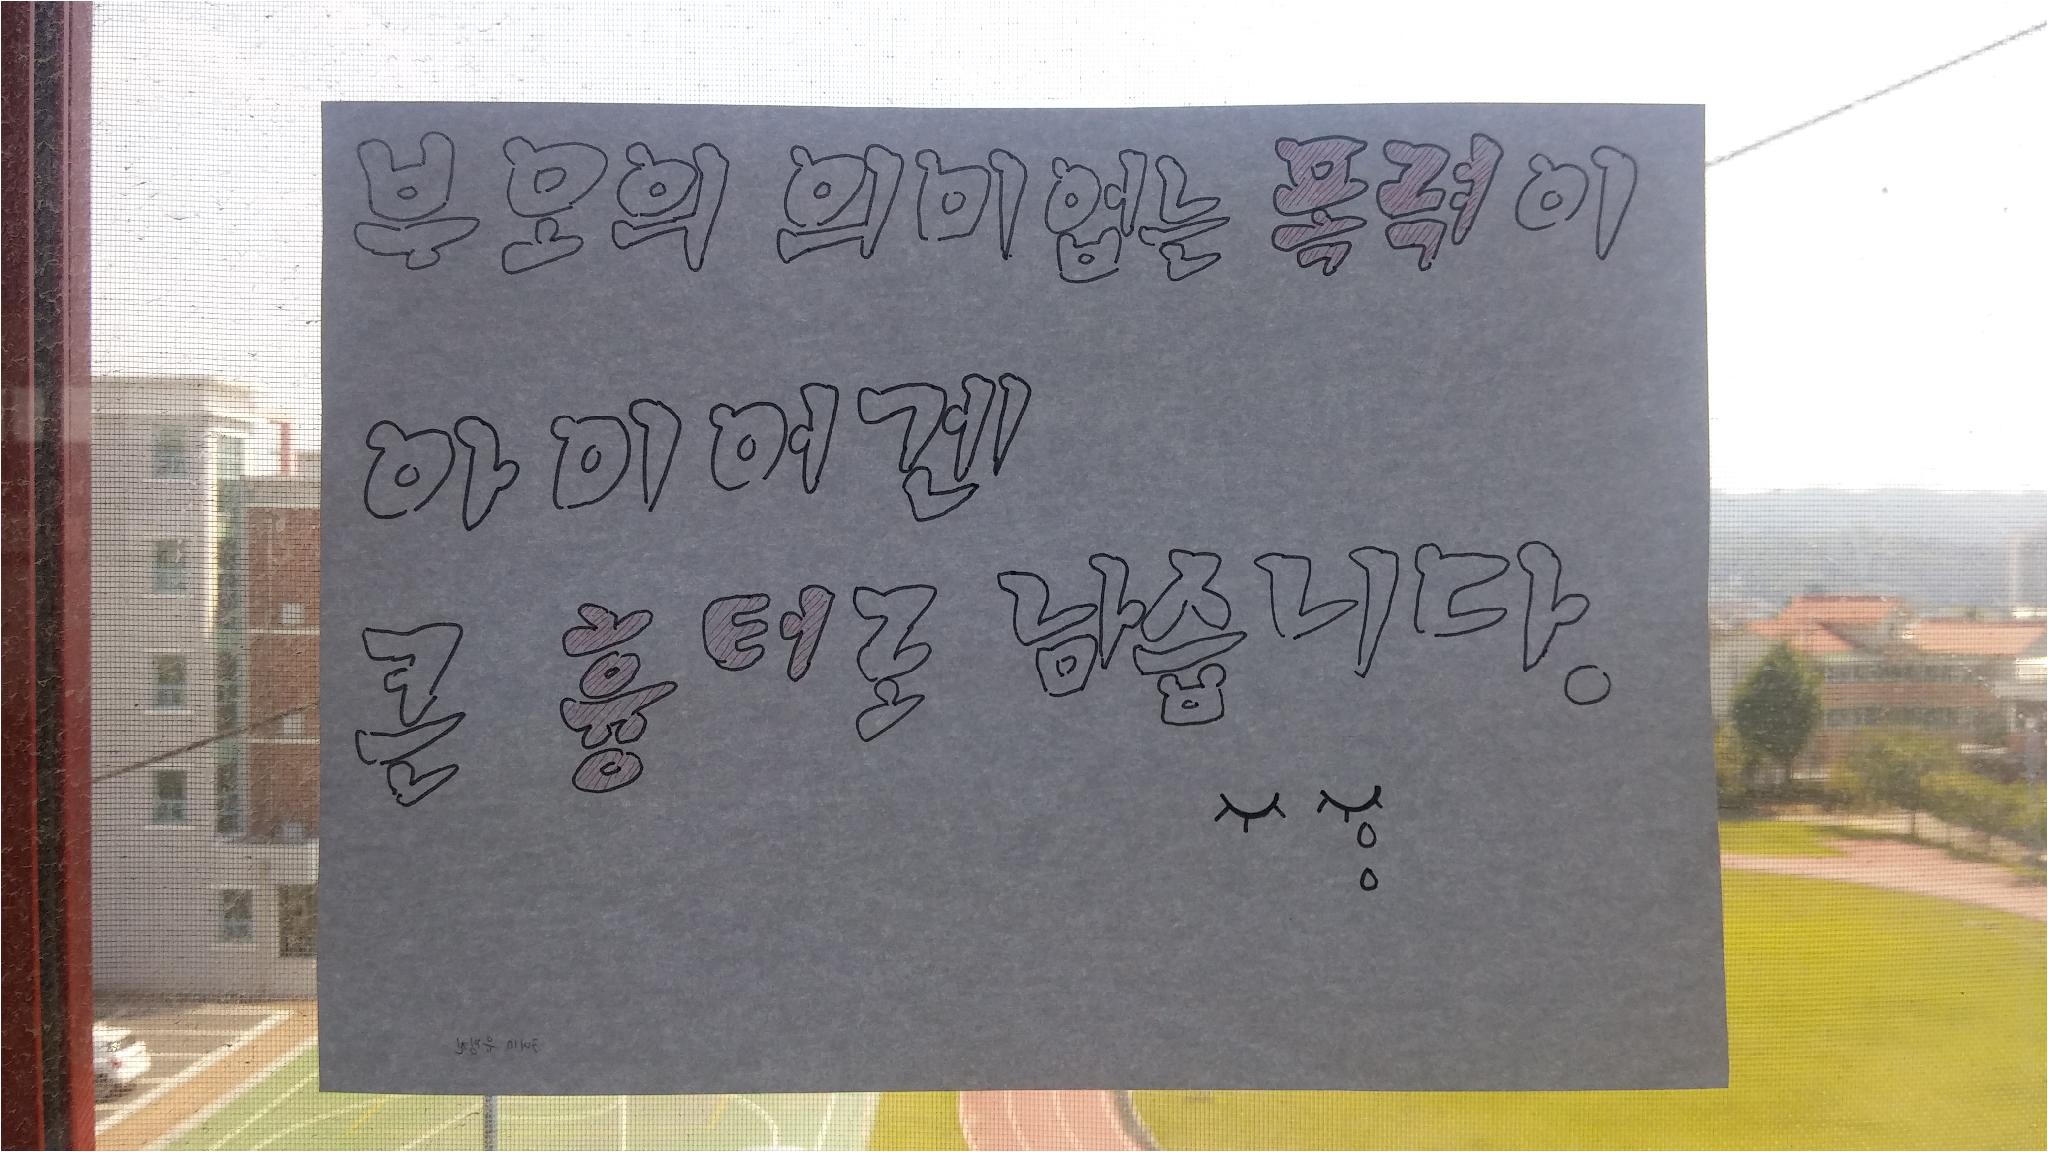 부모의 의미없는 폭력이
아이어겐
큰 흉터로 남습니다.